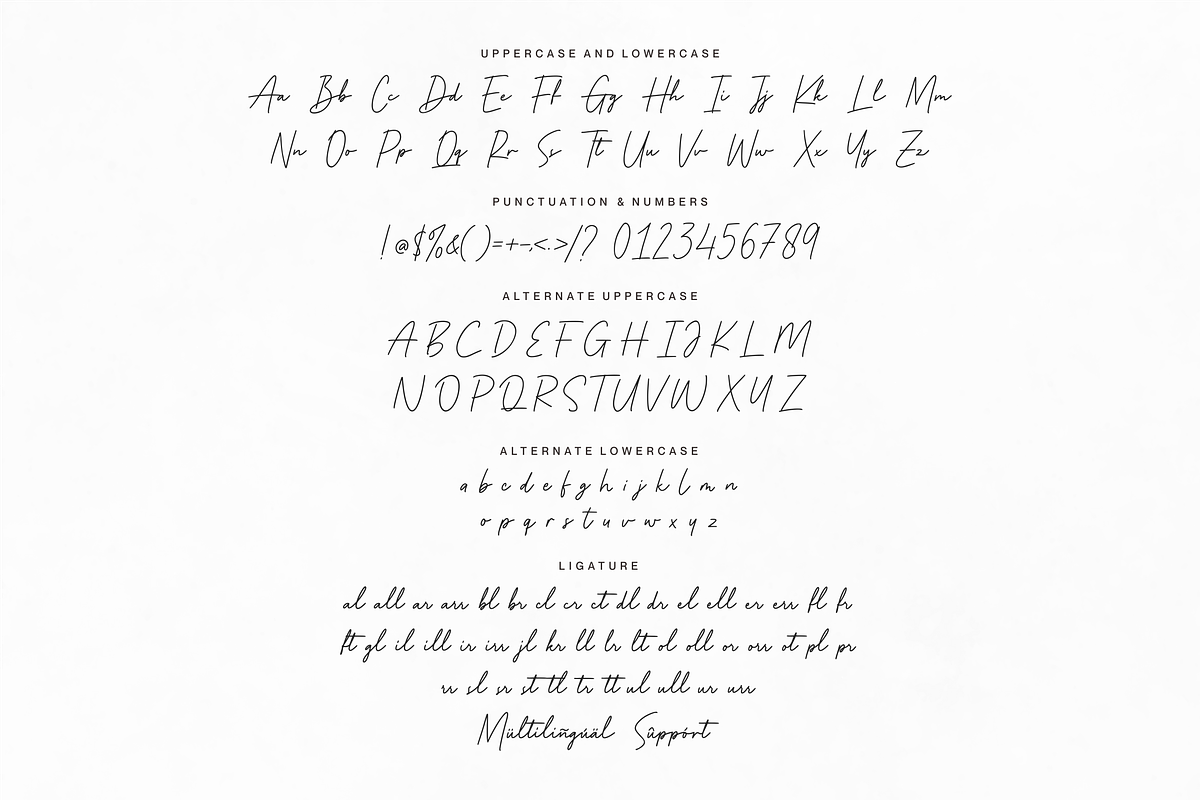 UPPERCASE AND LOWERCASE
Aa Bb Cc Dd Ee Ff Gg Hh Ii Jj Kk Ll Mm
Nn Oo Pp Qq Rr Ss Tt Uu Vv Ww Xx Yy Zz
PUNCTUATION & NUMBERS
!@$%&()=+-;<.>/? 0123456789
ALTERNATE UPPERCASE
ABCDEFGHIJKLM
NOPQRSTUVWXYZ
ALTERNATE LOWERCASE
a b c d e f g h i j k l m n
o p q r s t u v w x y z
LIGATURE
al all ar arr bl br cl cr ct dl dr el ell er err fl fr
ft gl il ill ir irr jl kr ll lr lt ol oll or orr ot pl pr
rr sl sr st tl tr tt ul ull ur urr
Mültilïñgúäl Sûppórt